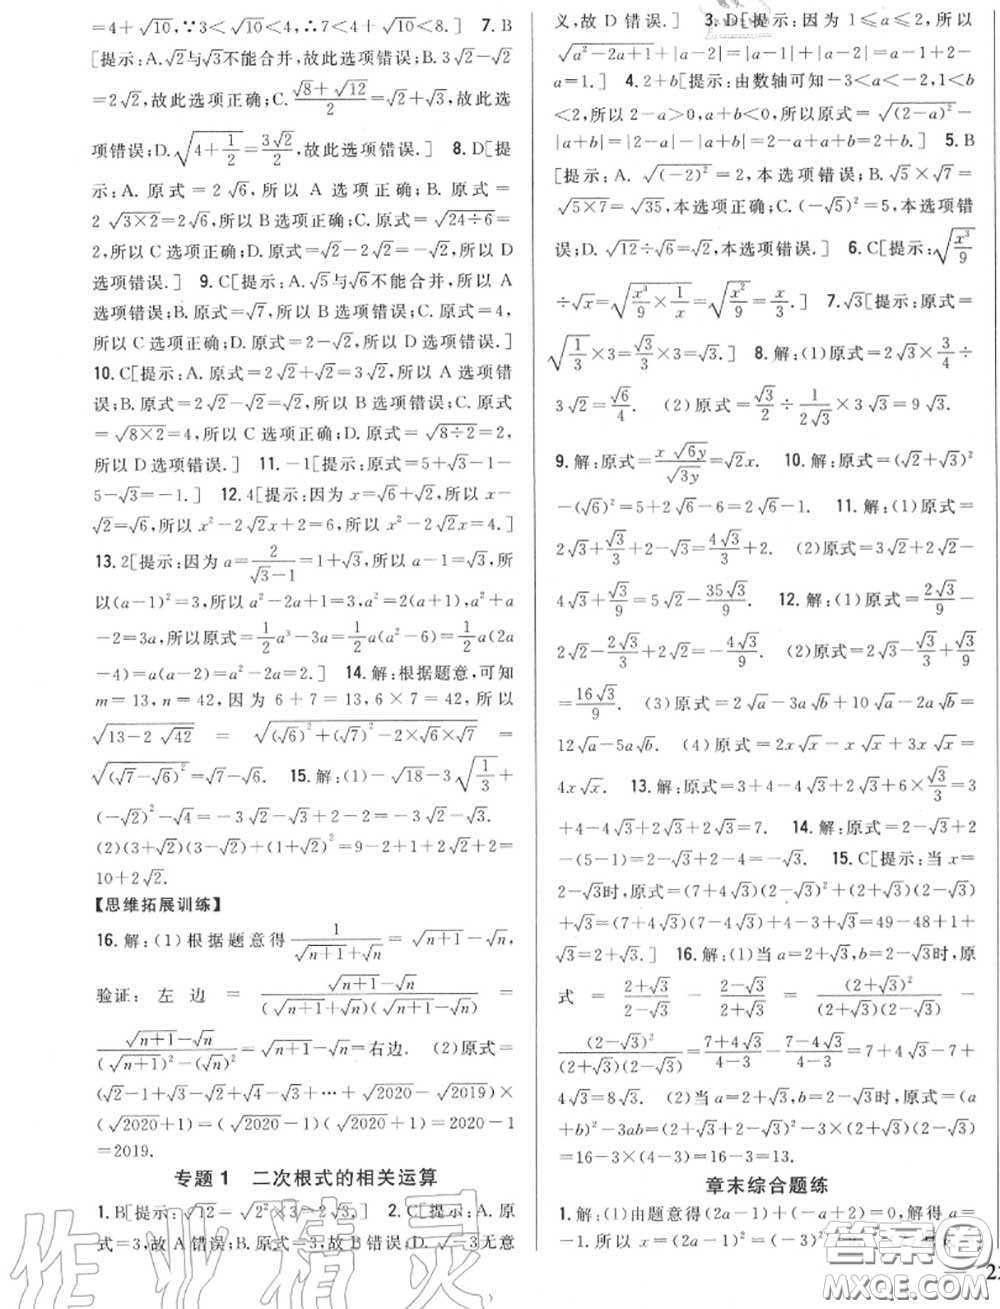 =4+√10,又∵3<√10<4,∴7<4+√10<8.] 7. B
[提示:A.√2与√3不能合并,故此选项错误;B.3√2-√2=
2√2,故此选项正确;C.(√8+√12)/2=√2+√3,故此选
项错误;D.√(4+1/2)=3√2/2,故此选项错误.] 8. D[提
示:A.原式=2√6,所以A选项正确;B.原式=
2√(3×2)=2√6,所以B选项正确;C.原式=√(24÷6)=
2,所以C选项正确;D.原式=√2-2√2=-√2,所以D
选项错误.] 9. C[提示:A.√5与√6不能合并,所以A
选项错误;B.原式=√7,所以B选项错误;C.原式=4,
所以C选项正确;D.原式=2-√2,所以D选项错误.]
10. C[提示:A.原式=2√2+√2=3√2,所以A选项错
误;B.原式=2√2-√2=√2,所以B选项错误;C.原式
=√(8×2)=4,所以C选项正确;D.原式=√(8÷2)=2,
所以D选项错误.] 11. -1[提示:原式=5+√3-1-
5-√3=-1.] 12. 4[提示:因为x=√6+√2,所以x-
√2=√6,所以x²-2√2x+2=6,所以x²-2√2x=4.]
13. 2[提示:因为a=2/(√3-1)=1+√3,所以a-1=√3,所
以(a-1)²=3,所以a²-2a+1=3,a²=2(a+1),a²+a
-2=3a,所以原式=1/2a³-3a=1/2a(a²-6)=1/2a(2a
-4)=a(a-2)=a²-2a=2.] 14. 解:根据题意,可知
m=13,n=42,因为6+7=13,6×7=42,所以
√(13-2√42)=√((√6)²+(√7)²-2×√6×√7)
=√((√7-√6)²)=√7-√6. 15. 解:(1)-√18-3√(1/3)+
(-√2)²-√4=-3√2-√3+2-2=-3√2-√3.
(2)(3+√2)(3-√2)+(1+√2)²=9-2+1+2√2+2=
10+2√2.
【思维拓展训练】
16. 解:(1)根据题意得1/(√(n+1)+√n)=√(n+1)-√n,
验证:左边=(√(n+1)-√n)/((√(n+1)+√n)(√(n+1)-√n))=
(√(n+1)-√n)/((√(n+1))²-(√n)²)=√(n+1)-√n=右边. (2)原式=
(√2-1+√3-√2+√4-√3+…+√2020-√2019)×
(√2020+1)=(√2020-1)(√2020+1)=2020-1
=2019.
专题1 二次根式的相关运算
1. B[提示:√12-√(2²×3)=2√3.] 2. C[提示:A.原
式=3,故A错误;B.原式=3,故B错误;D.√-3无意
义,故D错误.] 3. D[提示:因为1≤a≤2,所以
√(a²-2a+1)+|a-2|=|a-1|+|a-2|=a-1+2-
a=1.] 4. 2+b[提示:由数轴可知-3<a<-2,1<b
<2,所以2-a>0,a+b<0,所以原式=√((2-a)²)-
|a+b|=|2-a|-|a+b|=2-a+a+b=2+b.] 5. B
[提示:A.√((-2)²)=2,本选项错误;B.√5×√7=
√(5×7)=√35,本选项正确;C.(-√5)²=5,本选项错
误;D.√12÷√6=√2,本选项错误.] 6. C[提示:√(x³/9)
÷√x=√(x³/9×1/x)=√(x²/9)=x/3.] 7. √3[提示:原式=
√(1/3)×3=√3/3×3=√3.] 8. 解:(1)原式=2√2×3/4÷
3√2=√6/4. (2)原式=√3/2÷1/(2√3)×3√3=9√3.
9. 解:原式=x√(6y)/√(3y)=√2x. 10. 解:原式=(√2+√3)²
-(√6)²=5+2√6-6=2√6-1. 11. 解:(1)原式=
2√3+√3/3+2-√3=4√3/3+2. (2)原式=3√2+2√2-
4√3+√3/9=5√2-35√3/9. 12. 解:(1)原式=2√3/9-
2√2-2√3/3+2√2=-4√3/9. (2)原式=2√3-√3/3+√3/9
=16√3/9. (3)原式=2√a-3a√b+10√a-2a√b=
12√a-5a√b. (4)原式=2x√x-x√x+3x√x=
4x√x. 13. 解:原式=3+4-4√3+2√3+6×√3/3=3
+4-4√3+2√3+2√3=7. 14. 解:原式=2-√3+2
-(5-1)=2-√3+2-4=-√3. 15. C[提示:当x=
2-√3时,原式=(7+4√3)(2-√3)²+(2+√3)(2-√3)
+√3=(7+4√3)(7-4√3)+4-3+√3=49-48+1
+√3=2+√3.] 16. 解:(1)当a=2+√3,b=2-√3时,原
式=(2+√3)/(2-√3)-(2-√3)/(2+√3)=(2+√3)²/((2+√3)(2-√3))-
(2-√3)²/((2+√3)(2-√3))=(7+4√3)/(4-3)-(7-4√3)/(4-3)=
4√3=8√3. (2)当a=2+√3,b=2-√3时,原式=(a+
b)²-3ab=(2+√3+2-√3)²-3×(2+√3)(2-√3)
=16-3×(4-3)=16-3=13.
章末综合题练
1. 解:(1)由题意得(2a-1)+(-a+2)=0,解得a=
-1.所以x=(2a-1)²=(-2-1)²=
作业精灵
答案圈
MXQE.COM